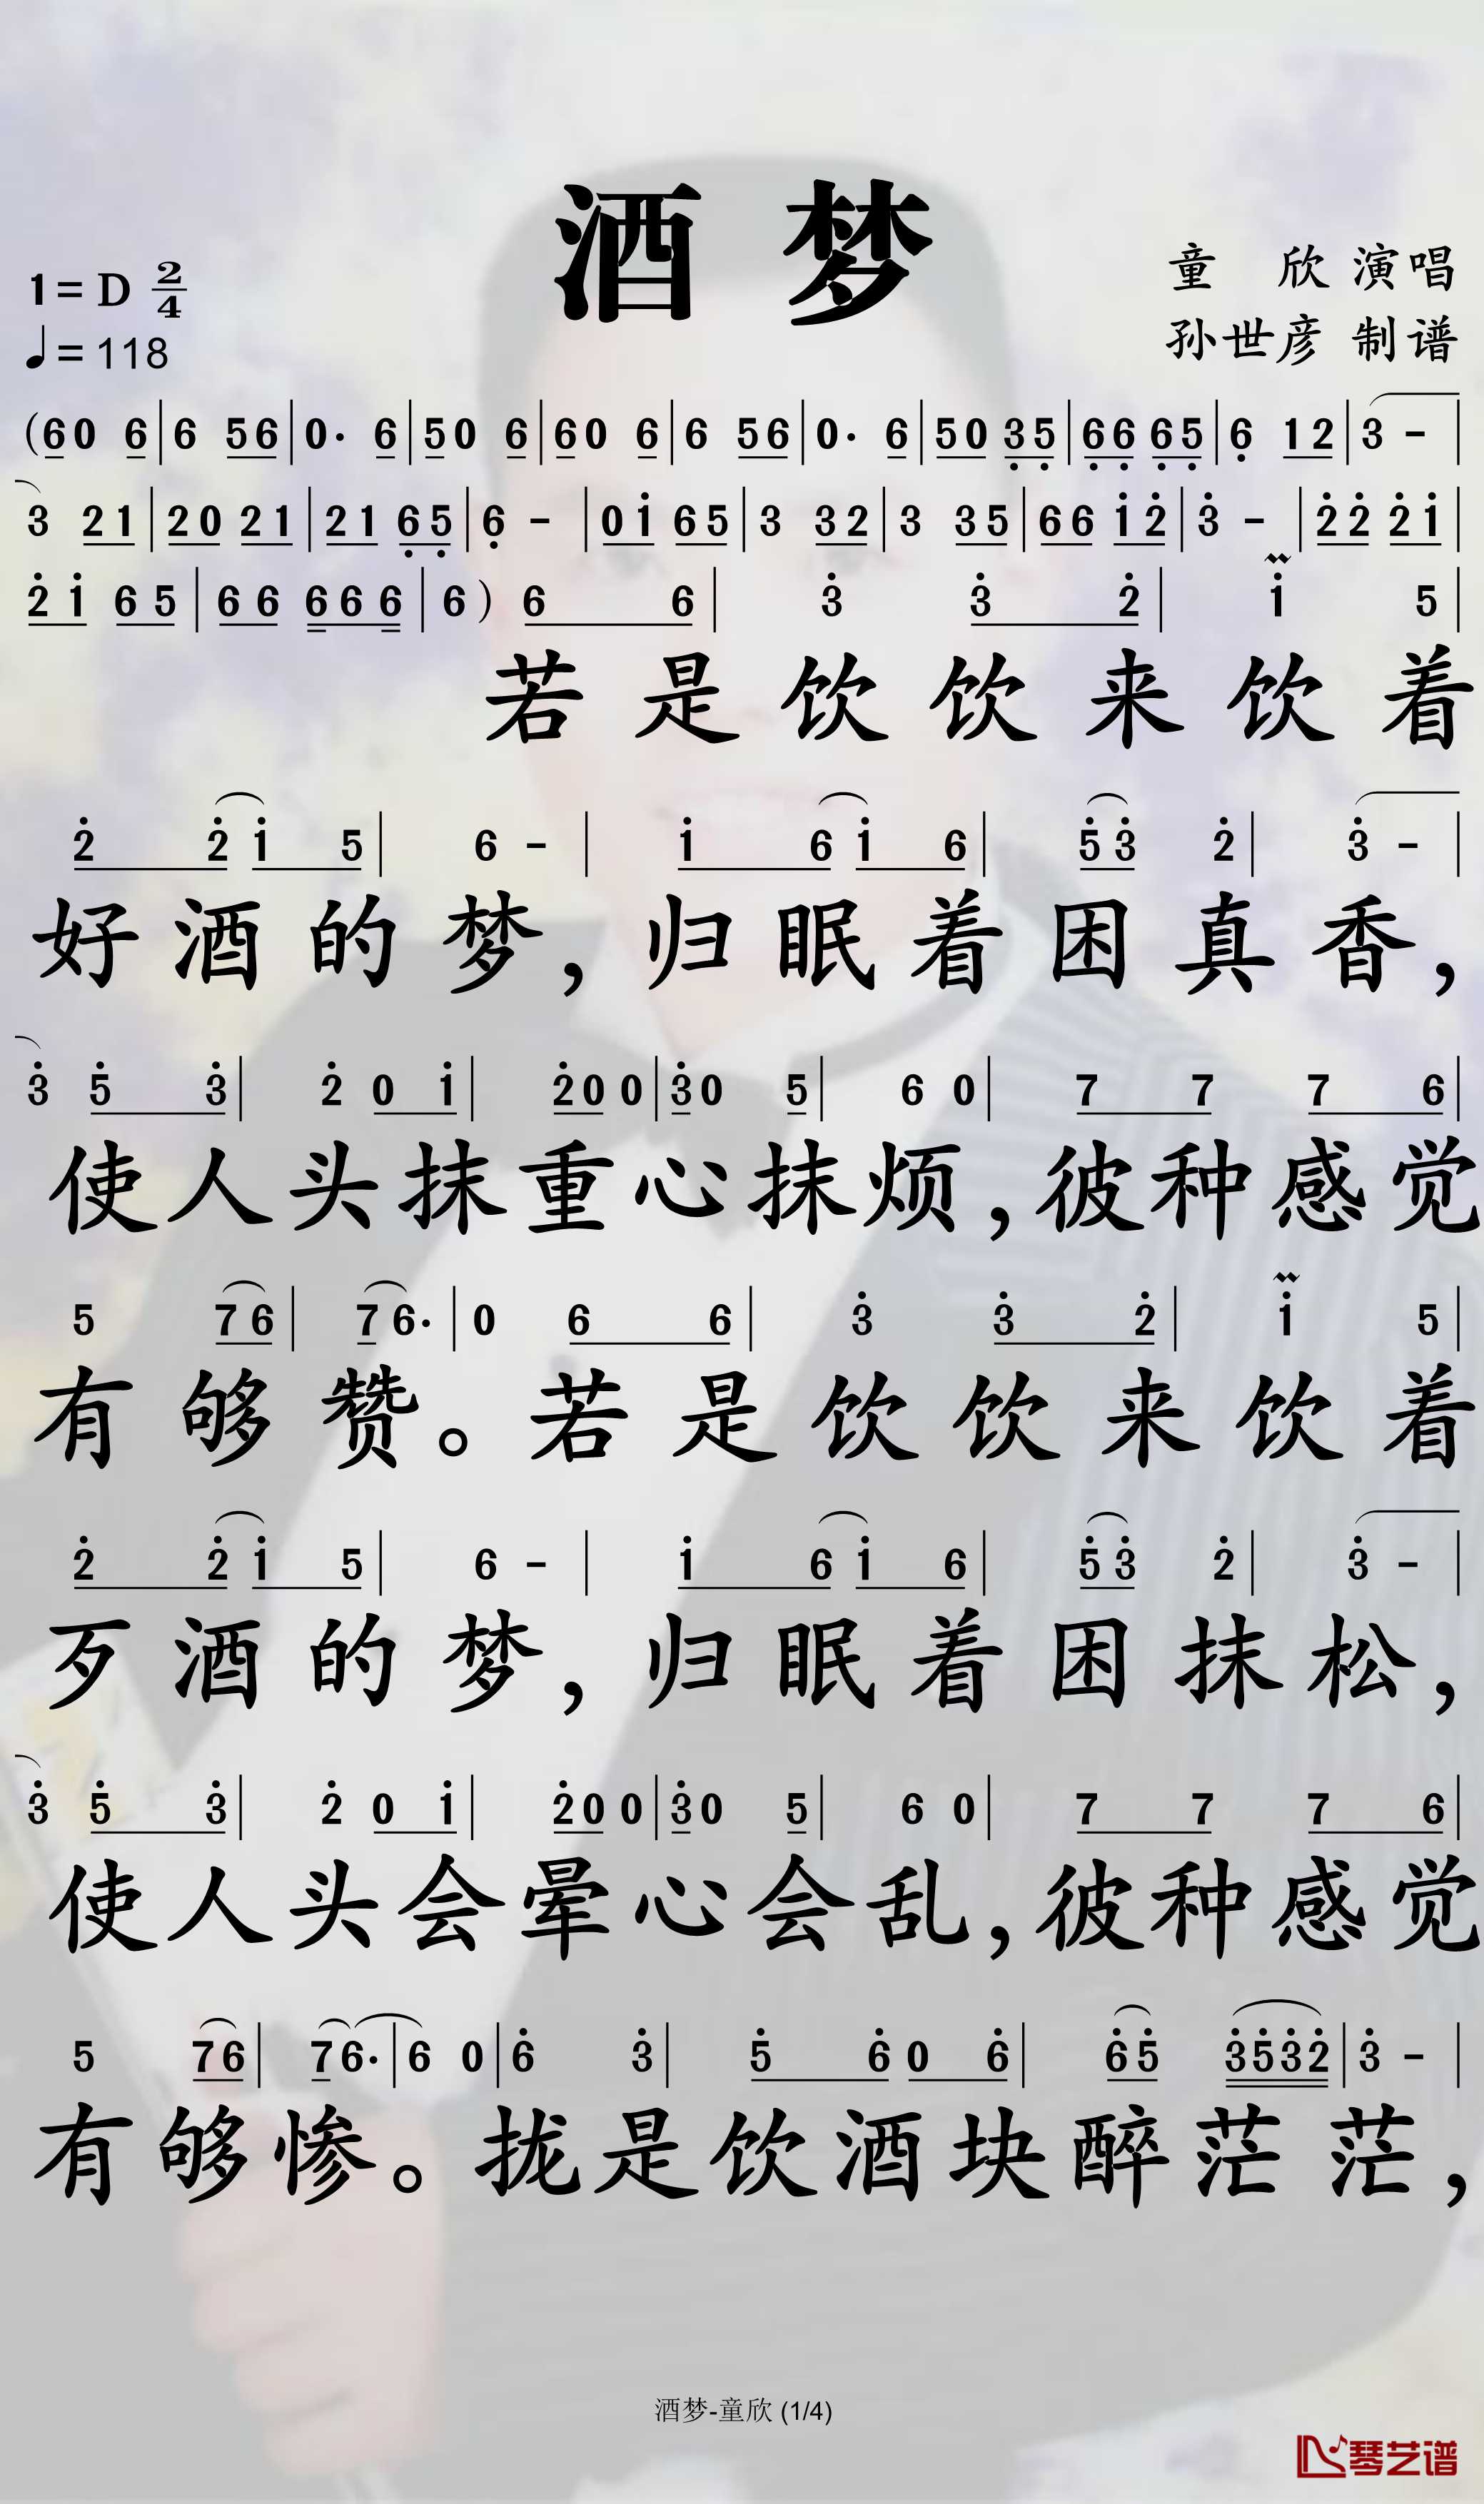 酒 梦
1=D 2/4
童 欣 演唱
♩=118
孙世彦 制谱
(60 6|6 56|0· 6|50 6|60 6|6 56|0· 6|50 3̣5̣|6̣6̣ 6̣5̣|6̣ 12|3 -|
3 21|20 21|21 6̣5̣|6̣ -|0i̇ 65|3 32|3 35|66 i̇2̇|3̇ -|2̇2̇ 2̇i̇|
2̇i̇ 65|66 666|6) 6 6|3̇ 3̇ 2̇|i̇ 5|
若是饮饮来饮着
2̇ 2̇i̇ 5|6 -|i̇ 6i̇ 6|5̇3̇ 2̇|3̇ -|
好酒的梦，归眠着困真香，
3̇ 5̇ 3̇|2̇ 0 i̇|2̇0 0|3̇0 5|6 0|7 7 7 6|
使人头抹重心抹烦，彼种感觉
5 76|76·|0 6 6|3̇ 3̇ 2̇|i̇ 5|
有够赞。若是饮饮来饮着
2̇ 2̇i̇ 5|6 -|i̇ 6i̇ 6|5̇3̇ 2̇|3̇ -|
歹酒的梦，归眠着困抹松，
3̇ 5̇ 3̇|2̇ 0 i̇|2̇0 0|3̇0 5|6 0|7 7 7 6|
使人头会晕心会乱，彼种感觉
5 76|76·|6 0|6̇ 3̇|5̇ 6̇ 0 6̇|6̇5̇ 3̇5̇3̇2̇|3̇ -|
有够惨。拢是饮酒块醉茫茫，
酒梦-童欣 (1/4)
琴艺谱